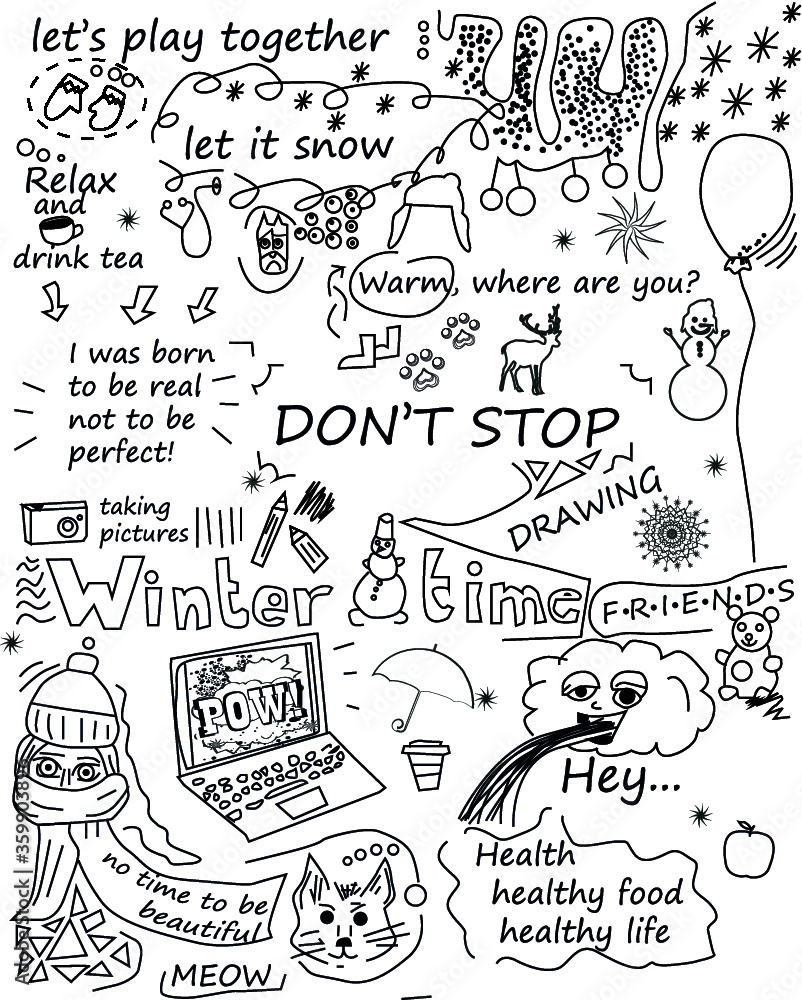 let's play together
let it snow
Relax
and
drink tea
Warm, where are you?
I was born
to be real
not to be
perfect!
DON'T STOP
taking
pictures
DRAWING
Winter time
F·R·I·E·N·D·S
POW!
Hey...
no time to be
beautiful
Health
healthy food
healthy life
MEOW
Adobe Stock | #359903896